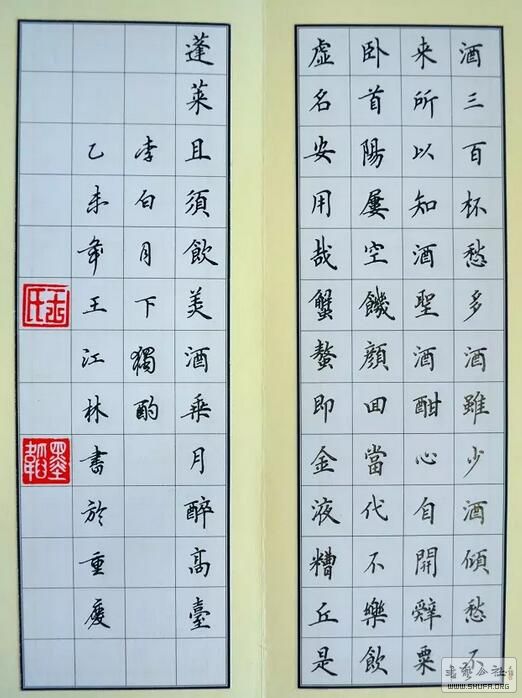 酒三百杯愁多酒雖少酒傾愁不
来所以知酒聖酒酣心自開辭粟
卧首陽屢空饑顔回當代不樂飲
虛名安用哉蟹螯即金液糟丘是
蓬莱且須飲美酒乘月醉高臺
李白月下獨酌
乙未年王江林書於重慶
书艺公社
WWW.SHUFA.ORG